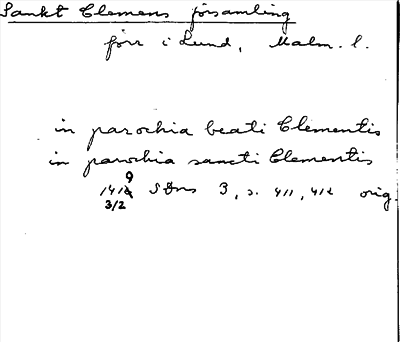 Sankt Clemens församling
förr i Lund, Malm. l.
in parochia beati Clementis
in parochia sancti Clementis
1419 SDns 3, s. 411, 412 orig.
3/2